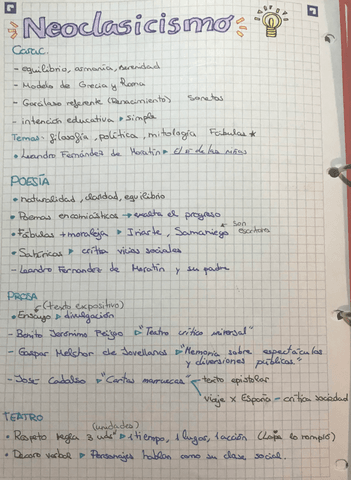 Neoclasicismo
Carac.
- equilibrio, armonía, serenidad
- Modelo de Grecia y Roma
- Garcilaso referente (Renacimiento) Sonetos
- intención educativa simple
Temas: filosofía, política, mitología Fábulas *
• Leandro Fernández de Moratín El sí de las niñas
POESÍA
• naturalidad, claridad, equilibrio
• Poemas encomiásticos → exalta el progreso
• Fábulas + moraleja Iriarte, Samaniego ← son escritores
• Satíricas crítica vicios sociales
- Leandro Fernandez de Moratín y su padre
PROSA
(texto expositivo)
• Ensayo divulgación
- Benito Jerónimo Feijoo "Teatro crítico universal"
- Gaspar Melchor de Jovellanos "Memoria sobre espectáculos
y diversiones públicas"
- Jose Cadalso "Cartas marruecas" texto epistolar
Viaje x España - crítica sociedad
TEATRO
(unidades)
• Respeto regla 3 uds 1 tiempo, 1 lugar, 1 acción (Lope lo rompió)
• Decoro verbal Personajes hablan como su clase social.